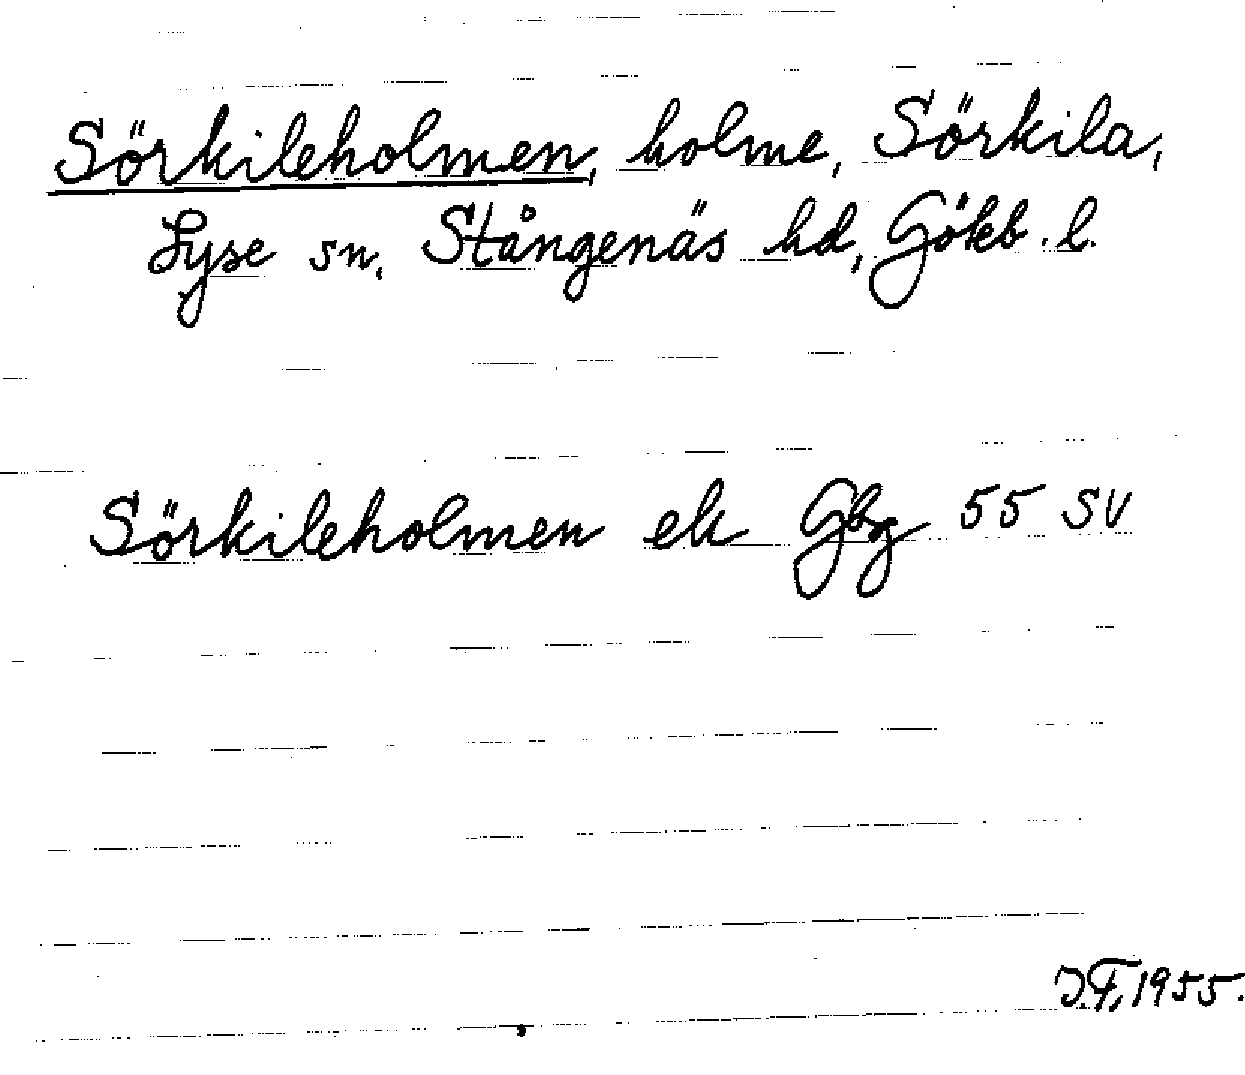 Sörkileholmen, holme, Sörkila,
Lyse sn, Stångenäs hd, Gökb. l.
Sörkileholmen ek Gbg 55 SV
J.F, 1955.